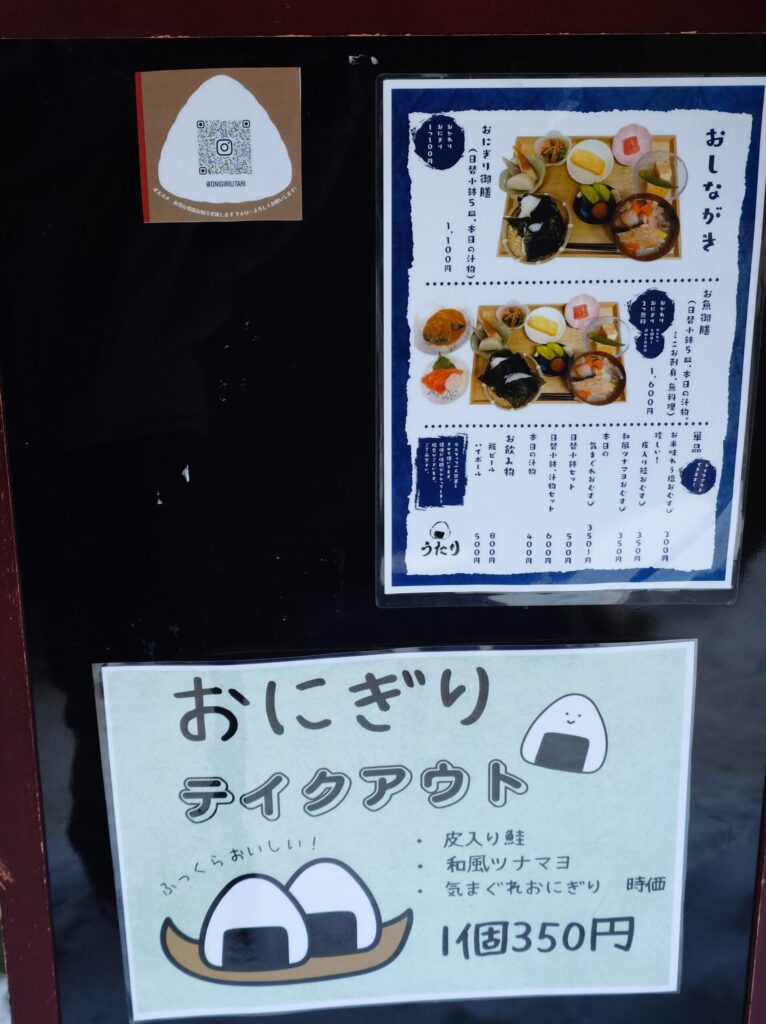 @ONIGIRIUTARI
おしながき
おにぎり御膳
(日替小鉢5皿、本日の汁物)
1,100円
おかわり
おにぎり
1つ100円
お魚御膳
(日替小鉢5皿、本日の汁物、
ミニお刺身、魚料理)
1,600円
おかわり
おにぎり
単品
テイクアウト
できます!
お米味わう塩おむすび
200円
珍しい!
皮入り鮭おむすび
350円
和風ツナマヨおむすび
350円
本日の
気まぐれおむすび
350円
日替小鉢セット
500円
日替小鉢、汁物セット
600円
本日の汁物
400円
お飲み物
瓶ビール
800円
ハイボール
500円
うたり
おにぎり
テイクアウト
ふっくらおいしい!
・ 皮入り鮭
・ 和風ツナマヨ
・ 気まぐれおにぎり 時価
1個350円